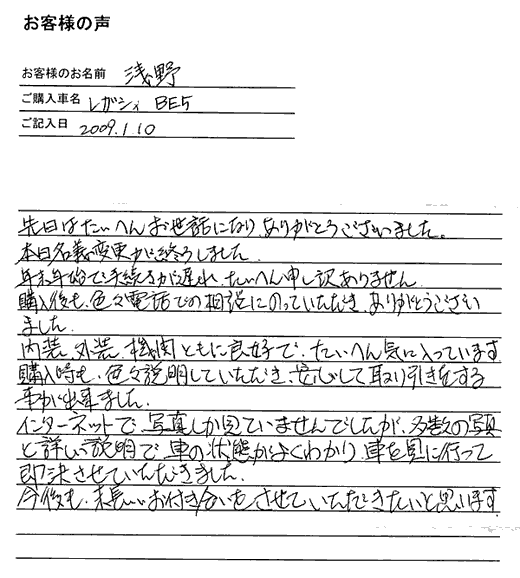 お客様の声
お客様のお名前 浅野
ご購入車名 レガシィ BE5
ご記入日 2009.1.10
先日はたいへんお世話になり、ありがとうございました。
本日名義変更が終了しました。
年末年始で手続きが遅れ、たいへん申し訳ありません。
購入後も、色々電話での相談にのっていただき、ありがとうござい
ました。
内装、外装、機関ともに良好で、たいへん気に入っています
購入時も、色々説明していただき、安心して取り引きをする
事が出来ました。
インターネットで、写真しか見ていませんでしたが、多数の写真
と詳しい説明で、車の状態がよくわかり、車を見に行って
即決させていただきました。
今後も、末長いお付き合いをさせていただきたいと思います